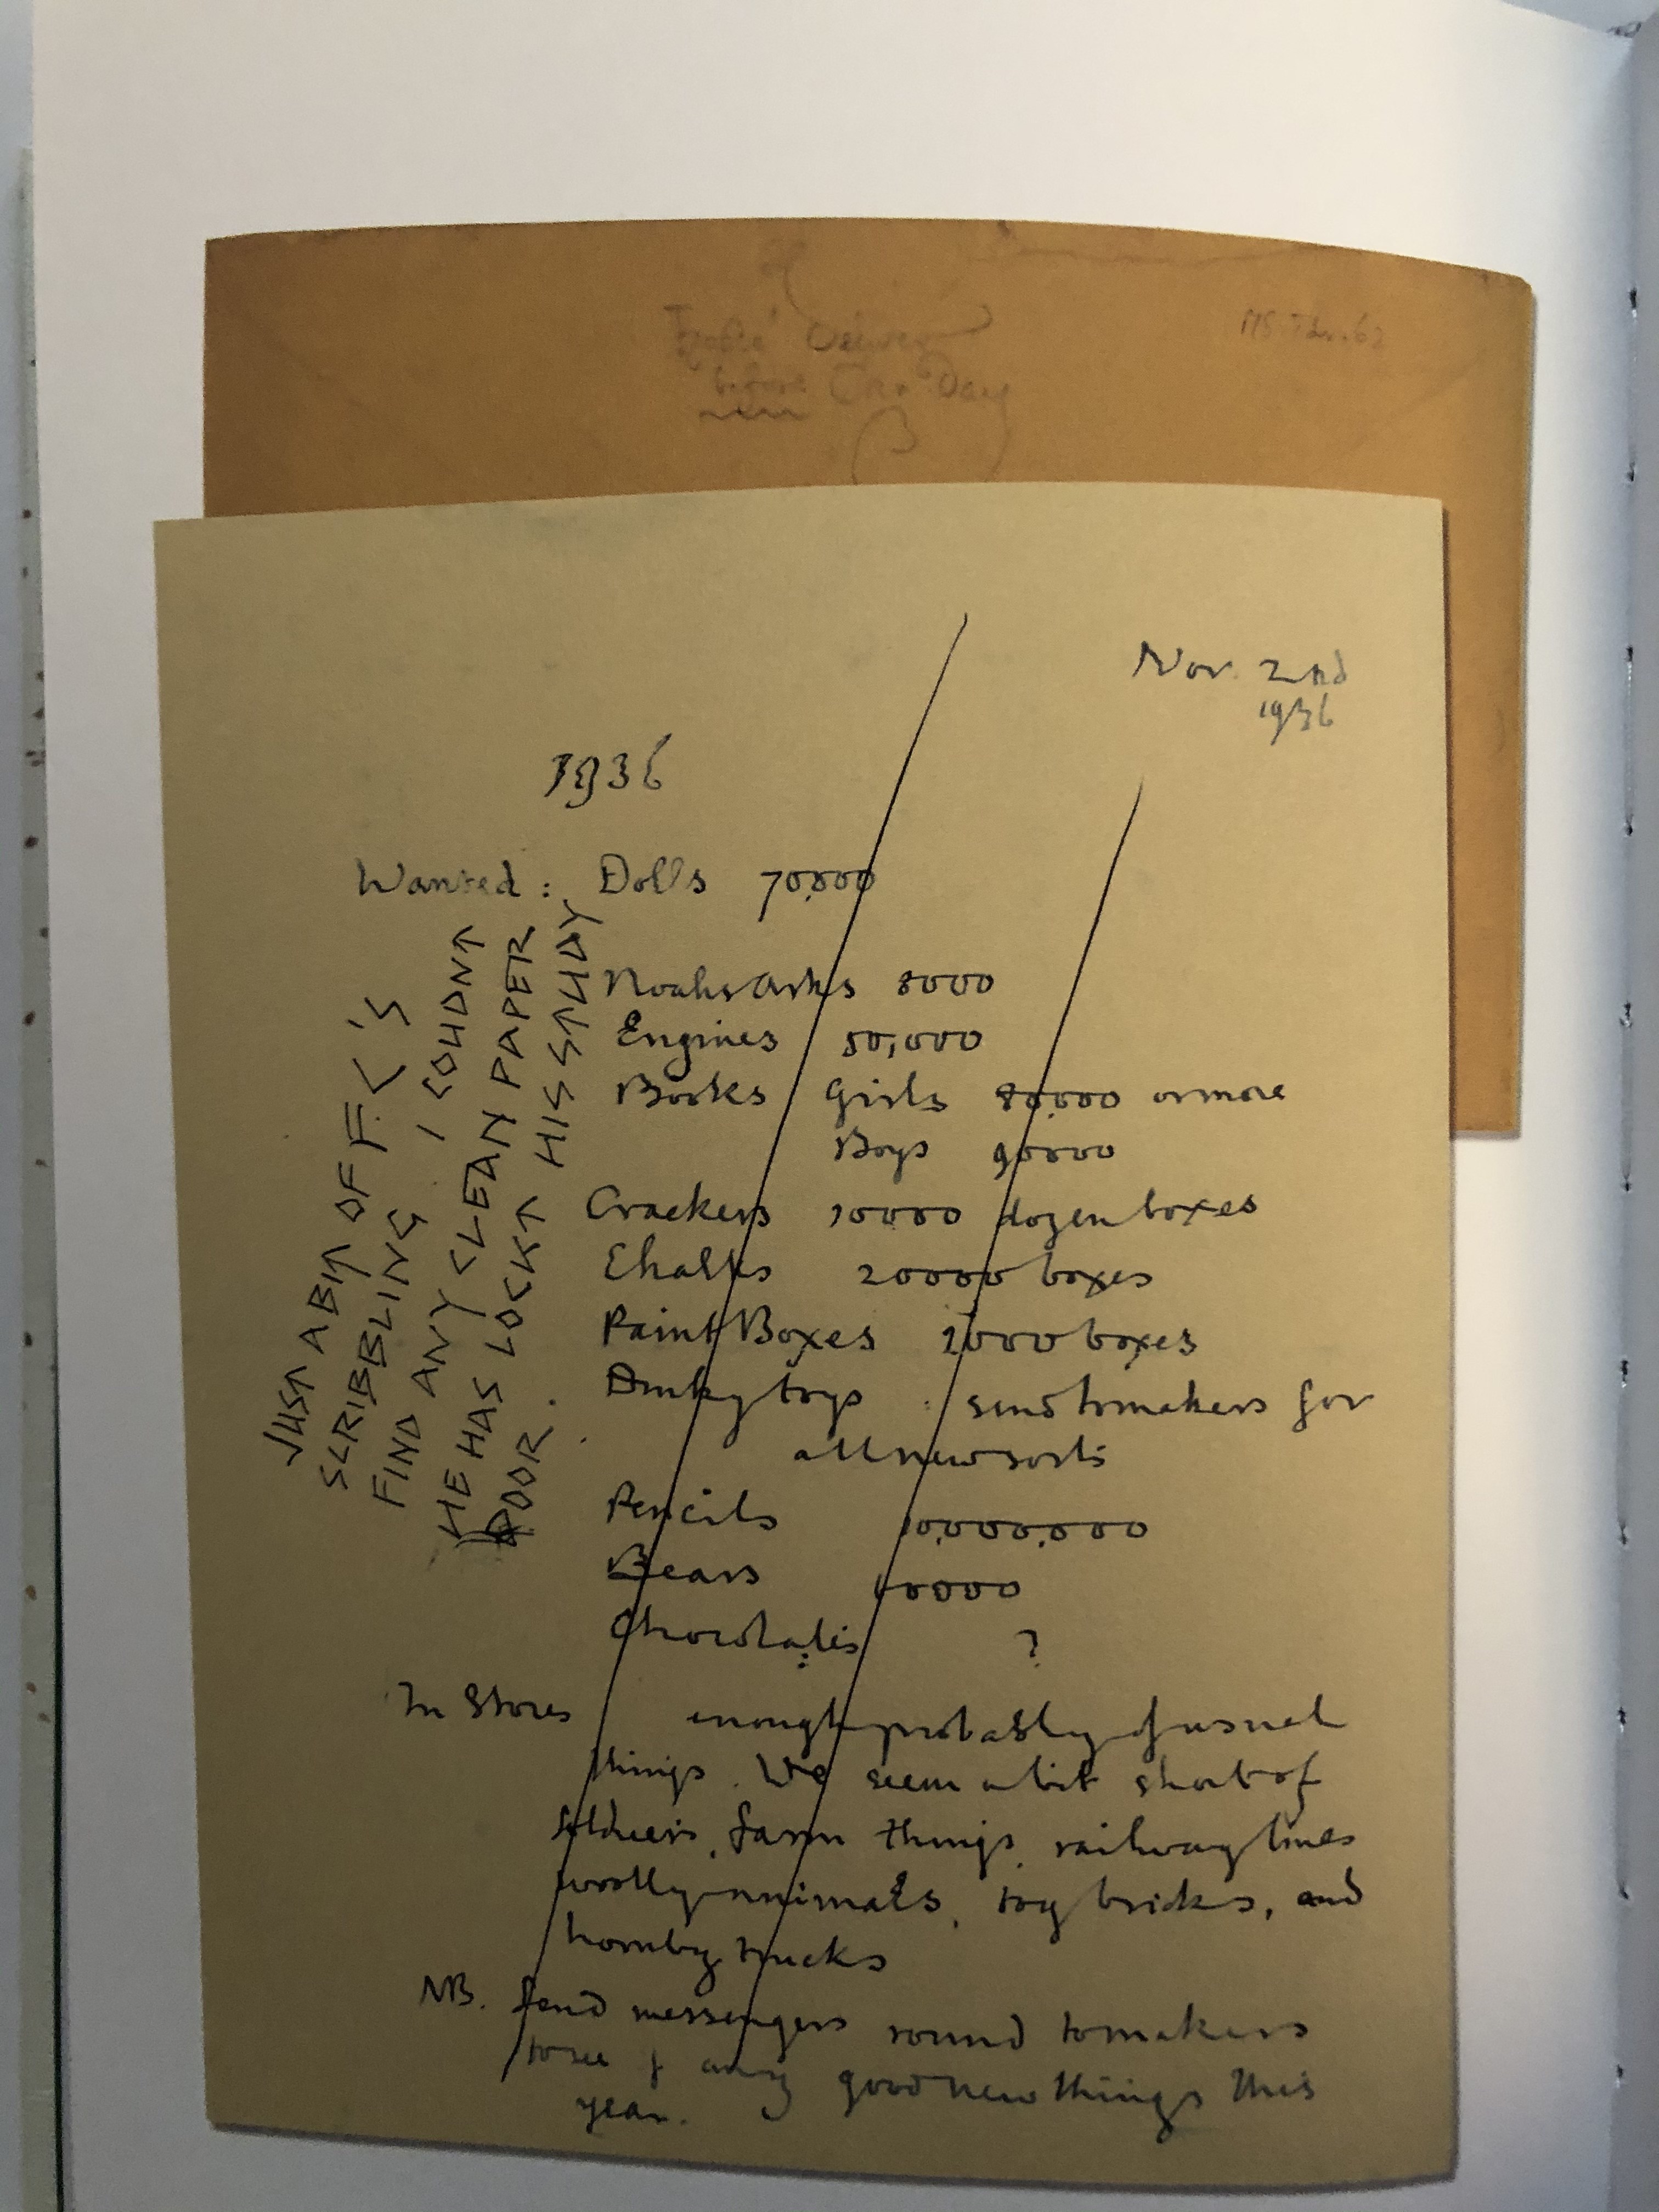 before Xmas Day
MS. Tdr. 62
Nov. 2nd
1936
1936
Wanted : Dolls 70,000
Noahs Arks 8000
Engines 50,000
Books Girls 80,000 or more
Boys 90000
Crackers 10000 dozen boxes
Chalks 20000 boxes
Paint Boxes 1000 boxes
Dinky toys : send to makers for
all new sorts
Pencils 10,000,000
Bears 10000
Chocolates ?
In Stores enough probably of usual
things. We seem a bit short of
soldiers, farm things, railway lines
woolly animals, toy bricks, and
hornby trucks
NB. Send messengers round to makers
to see if any good new things this
year.
JUST A BIT OF F.C'S
SCRIBBLING I COUDNT
FIND ANY CLEAN PAPER
HE HAS LOCKT HIS STUDY
DOOR.